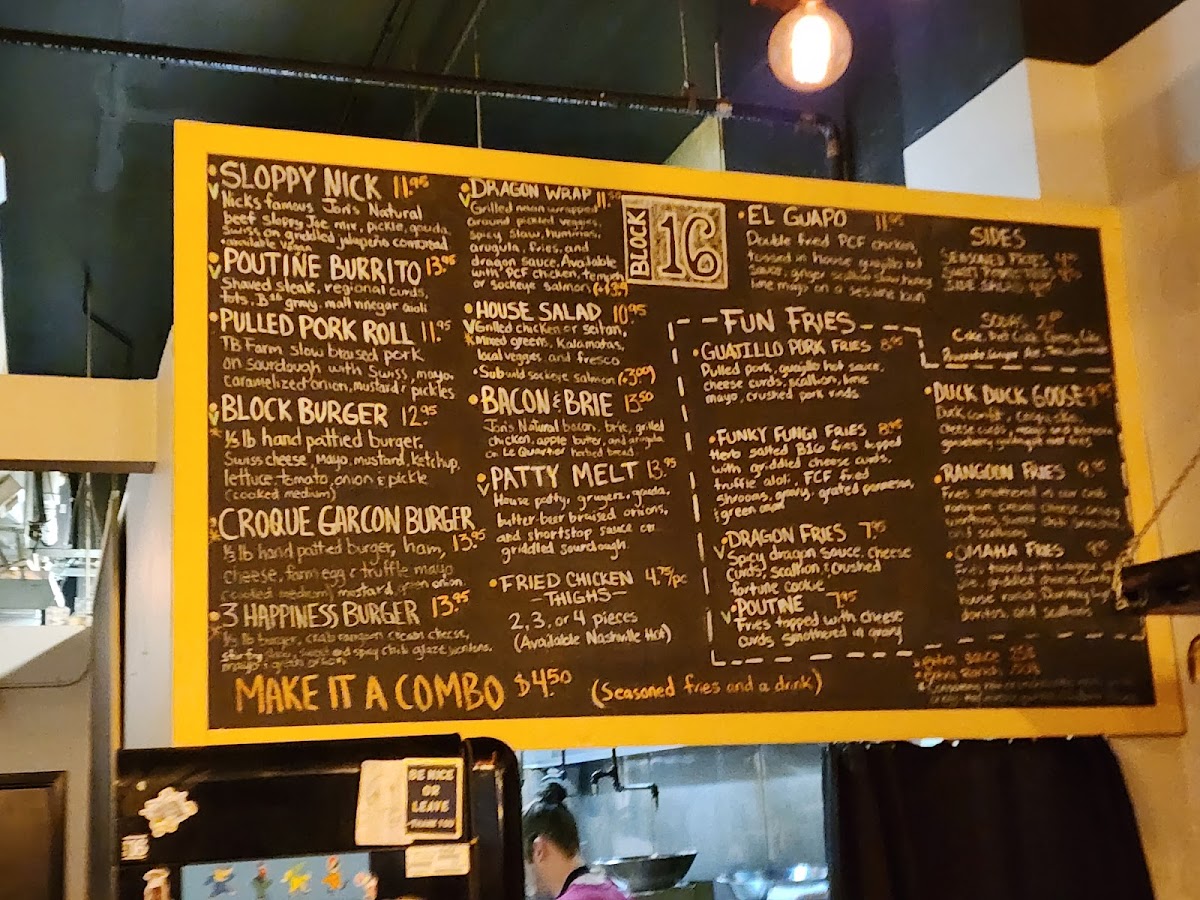 SLOPPY NICK 11.95
Nicks famous Jon's Natural
beef sloppy Joe mix, pickle, gouda,
Swiss on griddled jalapeño cornbread
*available vegan
POUTINE BURRITO 13.95
Shaved steak, regional curds,
tots, B16 gravy, malt vinegar aioli
PULLED PORK ROLL 11.95
TB Farm slow braised pork
on sourdough with Swiss, mayo,
caramelized onion, mustard & pickles
BLOCK BURGER 12.95
⅓ lb hand pattied burger.
Swiss cheese, mayo, mustard, ketchup,
lettuce, tomato, onion & pickle
(cooked medium)
CROQUE GARCON BURGER 13.95
⅓ lb hand pattied burger, ham,
cheese, farm egg & truffle mayo
(cooked medium) mustard, green onion
3 HAPPINESS BURGER 13.95
⅓ lb burger, crab rangoon cream cheese,
slaw, sweet and spicy chili glaze, wontons,
mayo, green onion
DRAGON WRAP 11
Grilled naan wrapped
around pickled veggies,
spicy slaw, hummus,
arugula, fries, and
dragon sauce. Available
with PCF chicken, tempeh
or sockeye salmon (+3.99)
HOUSE SALAD 10.95
Grilled chicken or seitan,
Mixed greens, Kalamatas,
local veggies and fresco
Sub wild sockeye salmon (+3.99)
BACON & BRIE 13.50
Jon's Natural bacon, brie, grilled
chicken, apple butter, and arugula
on Le Quartier herbed bread
PATTY MELT 13.95
House patty, gruyere, gouda,
butter-beer braised onions,
and shortstop sauce on
griddled sourdough
FRIED CHICKEN 4.75/pc
—THIGHS—
2, 3, or 4 pieces
(Available Nashville Hot)
MAKE IT A COMBO $4.50 (Seasoned fries and a drink)
BLOCK 16
EL GUAPO 11.95
Double fried PCF chicken,
tossed in House guajillo hot
sauce, ginger
lime mayo on a sesame bun
FUN FRIES
GUAJILLO PORK FRIES 8.95
Pulled pork, guajillo hot sauce,
cheese curds, scallion, lime
mayo, crushed pork rinds
FUNKY FUNGI FRIES 8.95
Herb salted B16 fries topped
with griddled cheese curds,
truffle aioli, FCF fried
shrooms, gravy, grated parmesan,
& green onion
DRAGON FRIES 7.95
Spicy dragon sauce, cheese
curds, scallion & crushed
fortune cookie
POUTINE 7.95
Fries topped with cheese
curds smothered in gravy
SIDES
SEASONED FRIES
SWEET POTATO
SIDE SALAD
SODAS
Coke, Diet Coke
DUCK DUCK GOOSE
Duck confit,
cheese curds,
RANGOON FRIES 9.95
Fries smothered in our crab
rangoon cream cheese,
and scallions
OMAHA FRIES
Fries topped with
griddled cheese
house ranch, Dorothy Lynch
doritos, and scallions
extra sauce
extra ranch
BE NICE
OR
LEAVE
THANK YOU